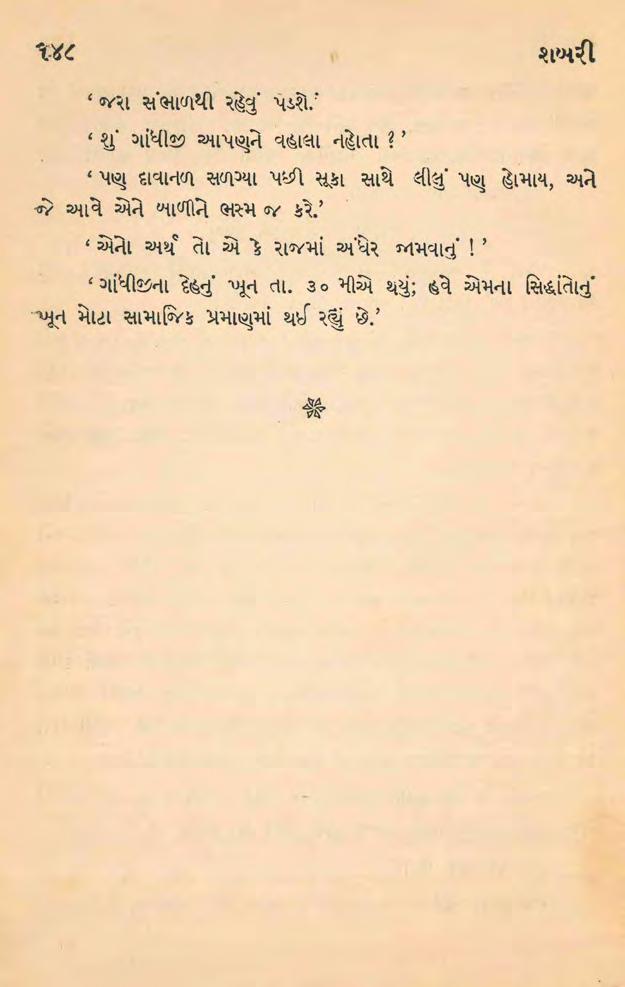 ૧૪૮ શબરી
‘જરા સંભાળથી રહેવું પડશે.’
‘શું ગાંધીજી આપણને વહાલા નહોતા ?’
‘પણ દાવાનળ સળગ્યા પછી સૂકા સાથે લીલું પણ હોમાય, અને
જે આવે એને બાળીને ભસ્મ જ કરે.’
‘એનો અર્થ તો એ કે રાજમાં અંધેર જામવાનું !’
‘ગાંધીજીના દેહનું ખૂન તા. ૩૦ મીએ થયું; હવે એમના સિદ્ધાંતોનું
ખૂન મોટા સામાજિક પ્રમાણમાં થઈ રહ્યું છે.’